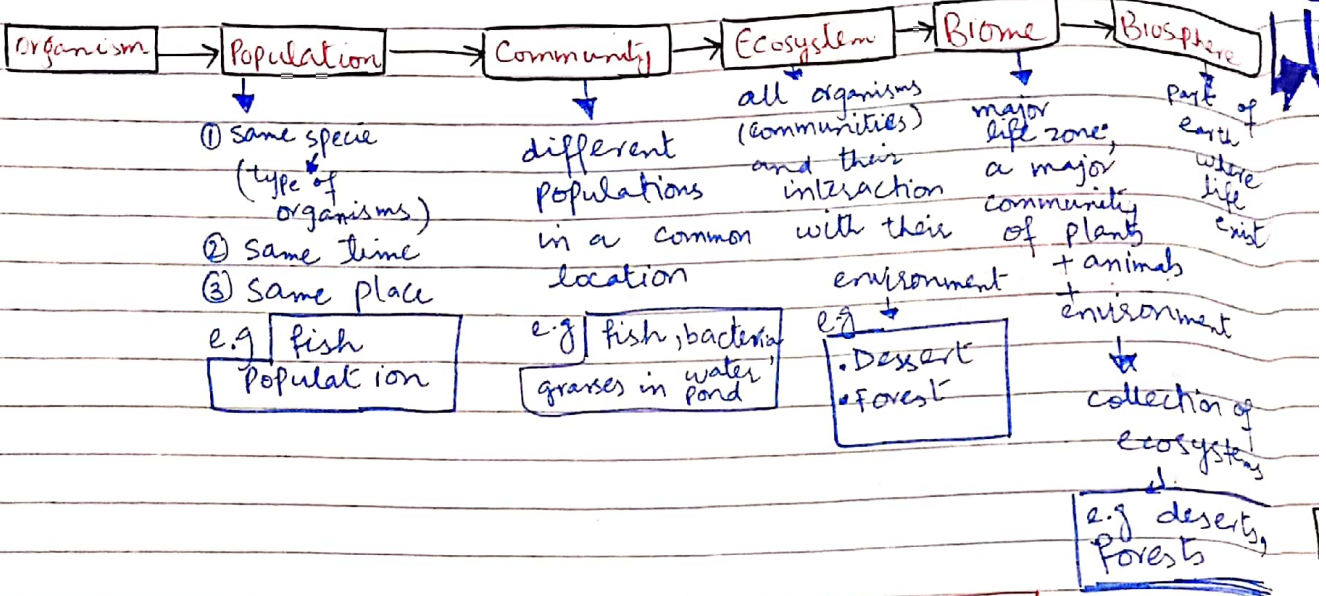 Organism → Population → Community → Ecosystem → Biome → Biosphere
① same specie
(type of
organisms)
② same time
③ same place
e.g fish
Population
different
populations
in a common
location
e.g fish, bacteria,
grasses in water
pond
all organisms
(communities)
and their
interaction
with their
environment
e.g
• Dessert
• Forest
major
life zone,
a major
community
of plants
+ animals
+
environment
collection of
ecosystems
e.g deserts,
Forests
part of
earth
where
life
exist